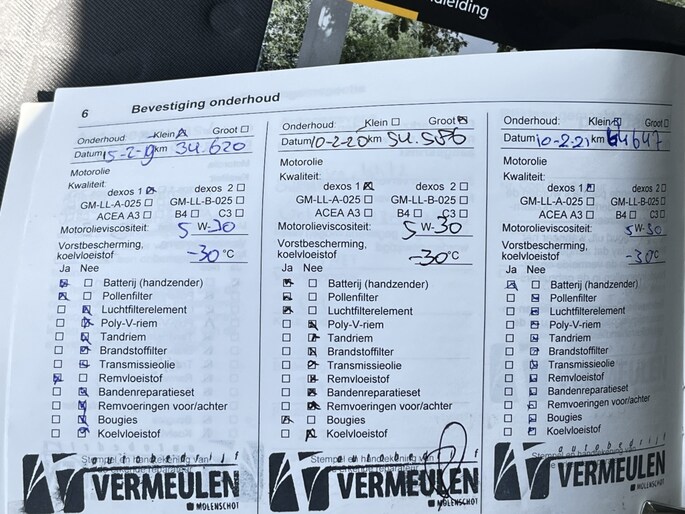 dleiding
6 Bevestiging onderhoud
Onderhoud: Klein Groot
Datum 15-2-19 km 34.620
Motorolie
Kwaliteit:
dexos 1 dexos 2
GM-LL-A-025 GM-LL-B-025
ACEA A3 B4 C3
Motorolieviscositeit: 5 W-30
Vorstbescherming,
koelvloeistof -30 °C
Ja Nee
Batterij (handzender)
Pollenfilter
Luchtfilterelement
Poly-V-riem
Tandriem
Brandstoffilter
Transmissieolie
Remvloeistof
Bandenreparatieset
Remvoeringen voor/achter
Bougies
Koelvloeistof
Stempel en handtekening van
autobedrijf
VERMEULEN
MOLENSCHOT
Onderhoud: Klein Groot
Datum 10-2-20 km 54.586
Motorolie
Kwaliteit:
dexos 1 dexos 2
GM-LL-A-025 GM-LL-B-025
ACEA A3 B4 C3
Motorolieviscositeit: 5 W-30
Vorstbescherming,
koelvloeistof -30 °C
Ja Nee
Batterij (handzender)
Pollenfilter
Luchtfilterelement
Poly-V-riem
Tandriem
Brandstoffilter
Transmissieolie
Remvloeistof
Bandenreparatieset
Remvoeringen voor/achter
Bougies
Koelvloeistof
Stempel en handtekening van
VERMEULEN
MOLENSCHOT
Onderhoud: Klein Groot
Datum 10-2-21 km 64647
Motorolie
Kwaliteit:
dexos 1 dexos 2
GM-LL-A-025 GM-LL-B-025
ACEA A3 B4 C3
Motorolieviscositeit: 5 W-30
Vorstbescherming,
koelvloeistof -30 °C
Ja Nee
Batterij (handzender)
Pollenfilter
Luchtfilterelement
Poly-V-riem
Tandriem
Brandstoffilter
Transmissieolie
Remvloeistof
Bandenreparatieset
Remvoeringen voor/achter
Bougies
Koelvloeistof
autobedrijf
Stempel en handtekening van
VERMEULEN
MOLENSCHOT